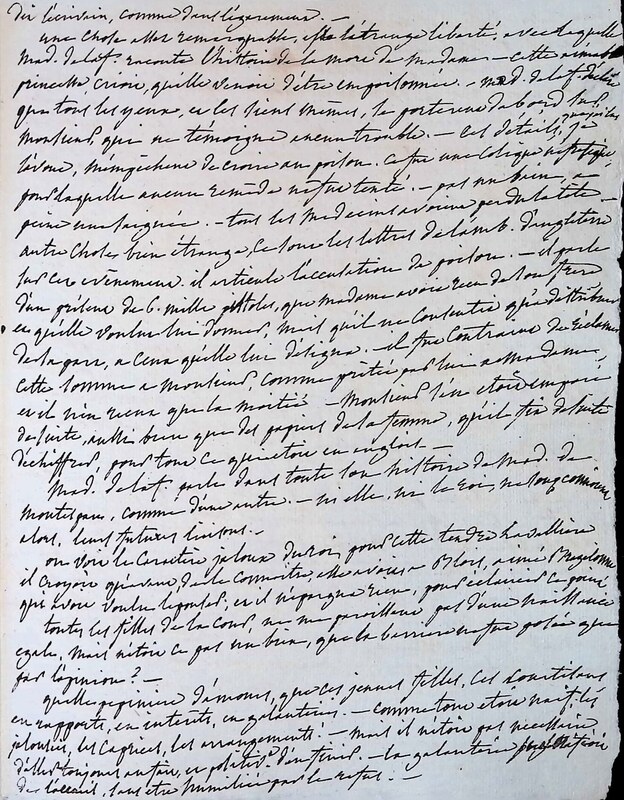 dix écrivain, comme dans légereneur. —
une chose assez remarquable, est l'étrange liberté, avec laquelle
Mad. de laf. raconte l'histoire de la mort de madame — cette aimable
princesse crioit, qu'elle venoit d'être empoisonnée. — mad. de laf. déclare
que tous les yeux, et les siens mêmes, se porterent d'abord sur
monsieur, qui ne témoigna aucun trouble. — ces détails, je
l'avoue, m'empêchent de croire au poison. Ce fut une colique
pour laquelle aucun remède ne fut tenté. — pas un bain, a
peine une saignée. — tous les medecins avoient perdu la tête —
autre chose, bien étrange, ce sont les lettres de l'amb. d'angleterre
sur cet evènement. il articule l'accusation de poison. — il parle
d'un présent de 6. mille pistoles, que madame avoit reçu de son frere
et qu'elle voulut lui donner, mais qu'il ne consentit qu'à distribuer
de sa part, a ceux qu'elle lui désigna. — il fut contraint de réclamer
cette somme a monsieur, comme pretée par lui a madame,
et il n'en reçut que la moitié — Monsieur s'en étoit emparé
de suite, aussi bien que des papiers de sa femme, qu'il fit de suite
déchiffrer, pour tout ce qui étoit en anglois. —
Mad. de laf. parle dans toute son histoire de Mad. de
montespan, comme d'une autre. — ni elle, ni le roi, ne soupçonnoient
alors, leurs futures liaisons. —
on voit le caractère jaloux du roi, pour cette tendre la valliere
il croyoit qu'avant, de le connoître, elle avoit a Blois, aimé Bragelonne
qui avoit voulu l'epouser, et il n'epargne rien, pour éclaircir ce point
toutes les filles de la cour, ne me paroissent pas d'une naissance
egale, mais n'étoit ce pas un bien, que la barriere ne fut posée que
par l'opinion? —
quelle pepiniere d'amours, que ces jeunes filles, ces
en rapports, en interêts, en galanteries. — comme tout étoit naif, les
jalousies, les caprices, les arrangements. — mais il n'étoit pas necessaire
d'aller toujours au fait, en d'en finir. — la galanterie
de l'accueil, sans etre humiliée par le refus. —